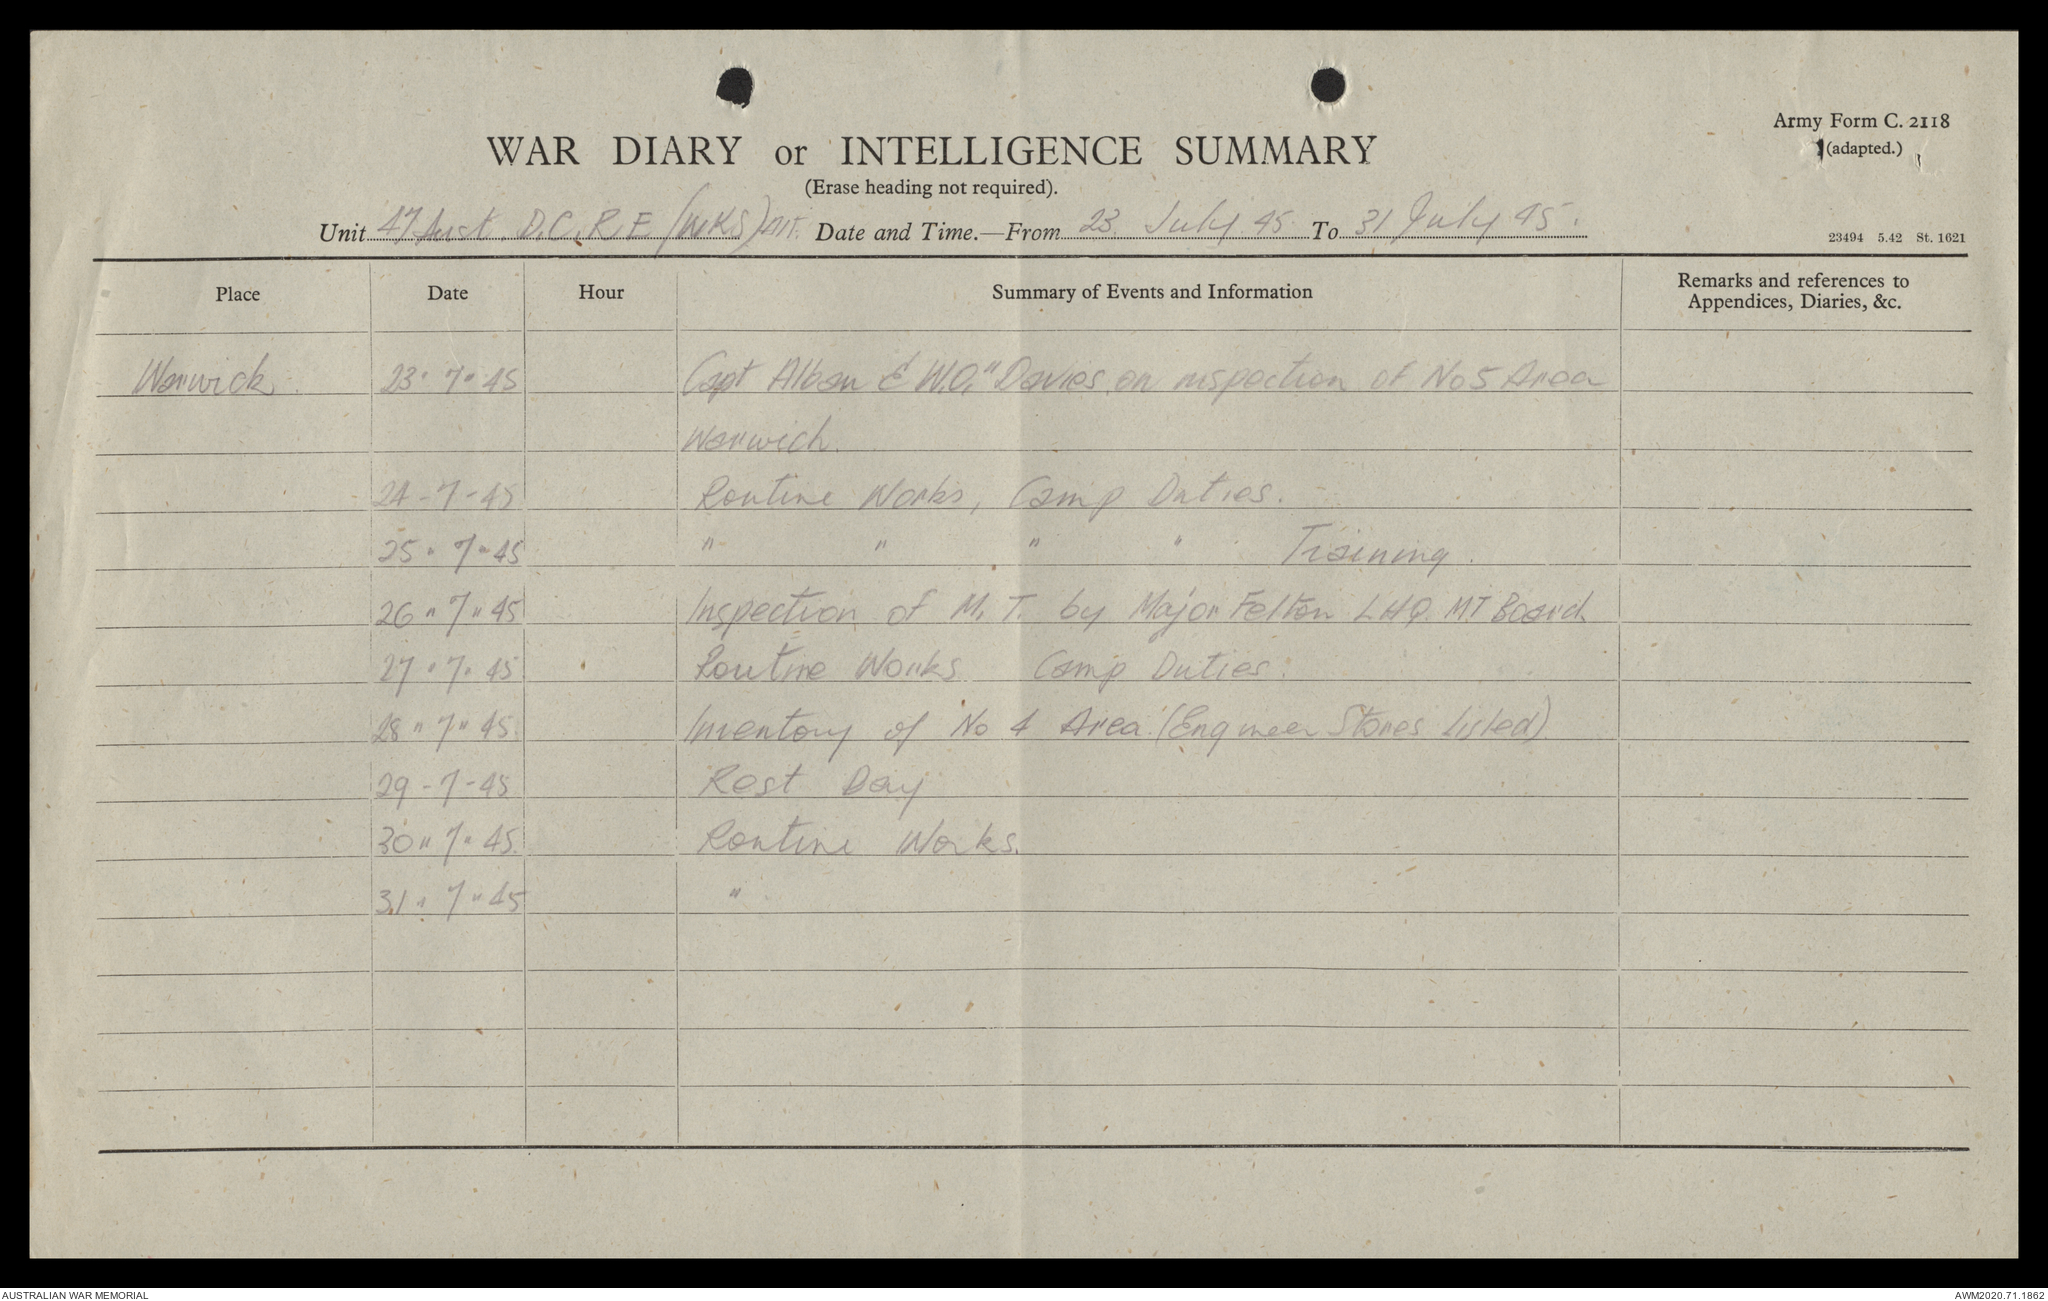 Army Form C. 2118
(adapted.)
WAR DIARY or INTELLIGENCE SUMMARY
(Erase heading not required).
Unit 47 Aust. D.C.R.E (WKS) Date and Time.—From 23 July 45. To 31 July 45.
23494 5.42 St. 1621
Place Date Hour Summary of Events and Information Remarks and references to
Appendices, Diaries, &c.
Warwick. 23" 7" 45 Capt Alban & W.O." Davies on inspection of No 5 Area
Warwick.
24 - 7 - 45 Routine Works, Camp Duties.
25" 7" 45 " " " " Training.
26" 7" 45 Inspection of M.T. by Major Felton LHQ. MT Board
27" 7" 45 Routine Works Camp Duties.
28" 7" 45. Inventory of No 4 Area (Engineer Stores listed)
29 - 7 - 45 Rest Day
30" 7" 45. Routine Works.
31" 7" 45 "
AUSTRALIAN WAR MEMORIAL AWM2020.71.1862